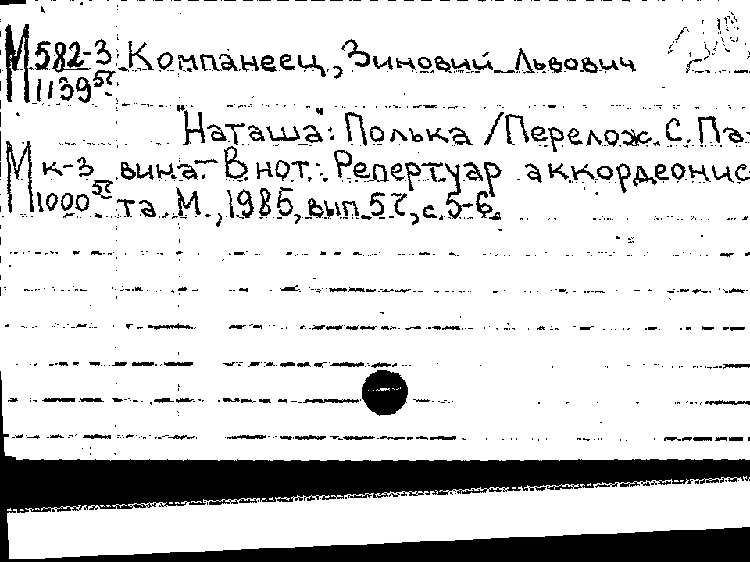 М 582-3 Компанеец, Зиновий Львович
1139
"Наташа": Полька / Перелож. С. Па-
М к-3 вина.- В нот.: Репертуар аккордеонис
1000 та. М., 1985, вып. 57, с. 5-6.